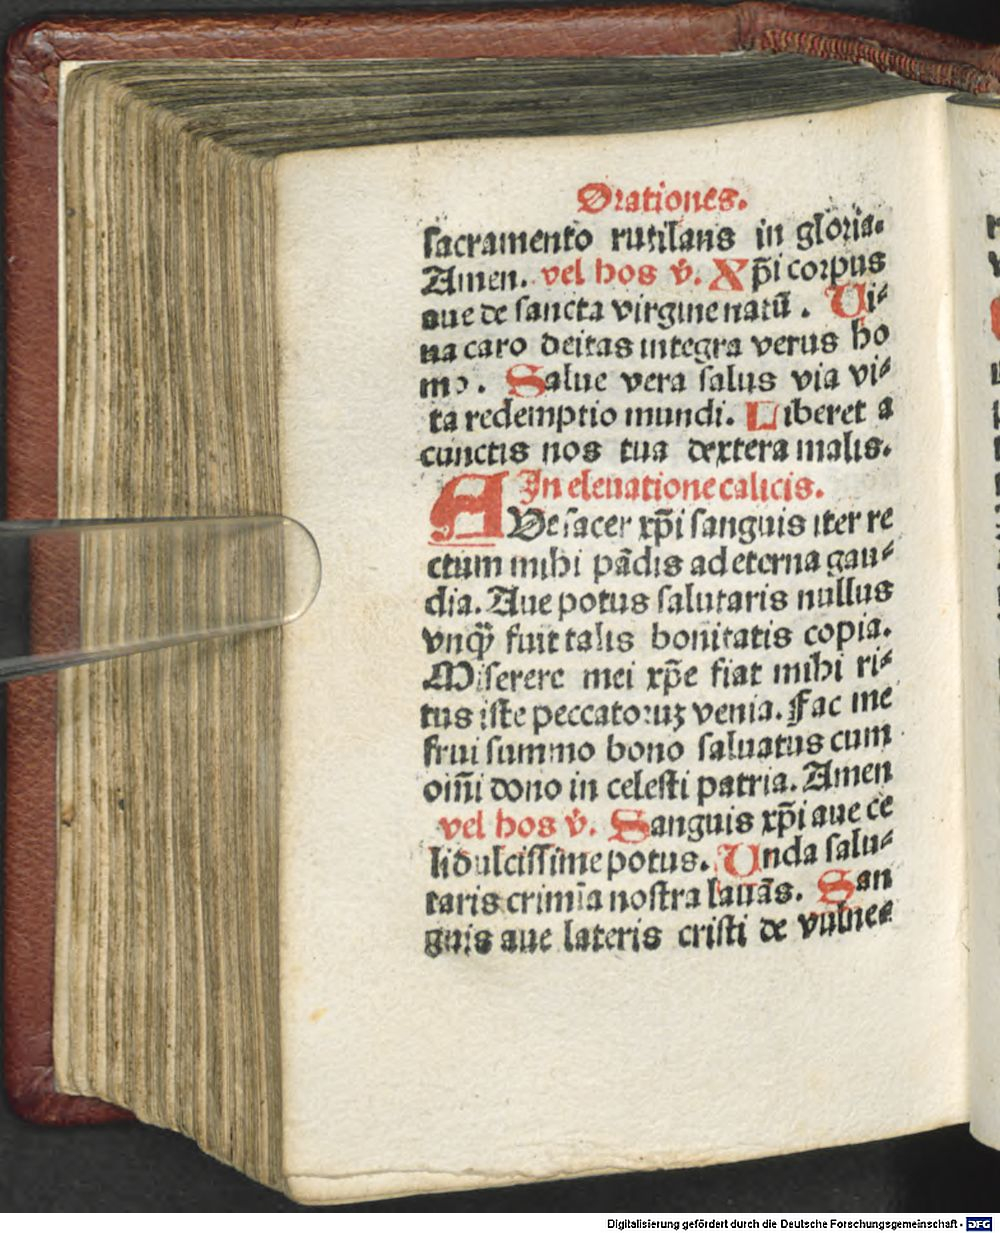 Orationes.
sacramento rutilans in gloria.
Amen. vel hos v̉. Xp̄i corpus
aue de sancta virgine natū. Ui⸗
na caro deitas integra verus ho
mo. Salue vera salus via vi⸗
ta redemptio mundi. Liberet a
cunctis nos tua dextera malis.
In eleuatione calicis.
AUe sacer xp̄i sanguis iter re
ctum mihi pādis ad eterna gau⸗
dia. Aue potus salutaris nullus
vnq̄ȝ fuit talis bonitatis copia.
Miserere mei xp̄e fiat mihi ri⸗
tus iste peccatoruȝ venia. Fac me
frui summo bono saluatus cum
oim̄i dono in celesti patria. Amen
vel hos v̉. Sanguis xp̄i aue ce
li dulcissime potus. Unda salu⸗
taris crimīa nostra lauās. San
guis aue lateris cristi de vulne⸗
Digitalisierung gefördert durch die Deutsche Forschungsgemeinschaft - DFG